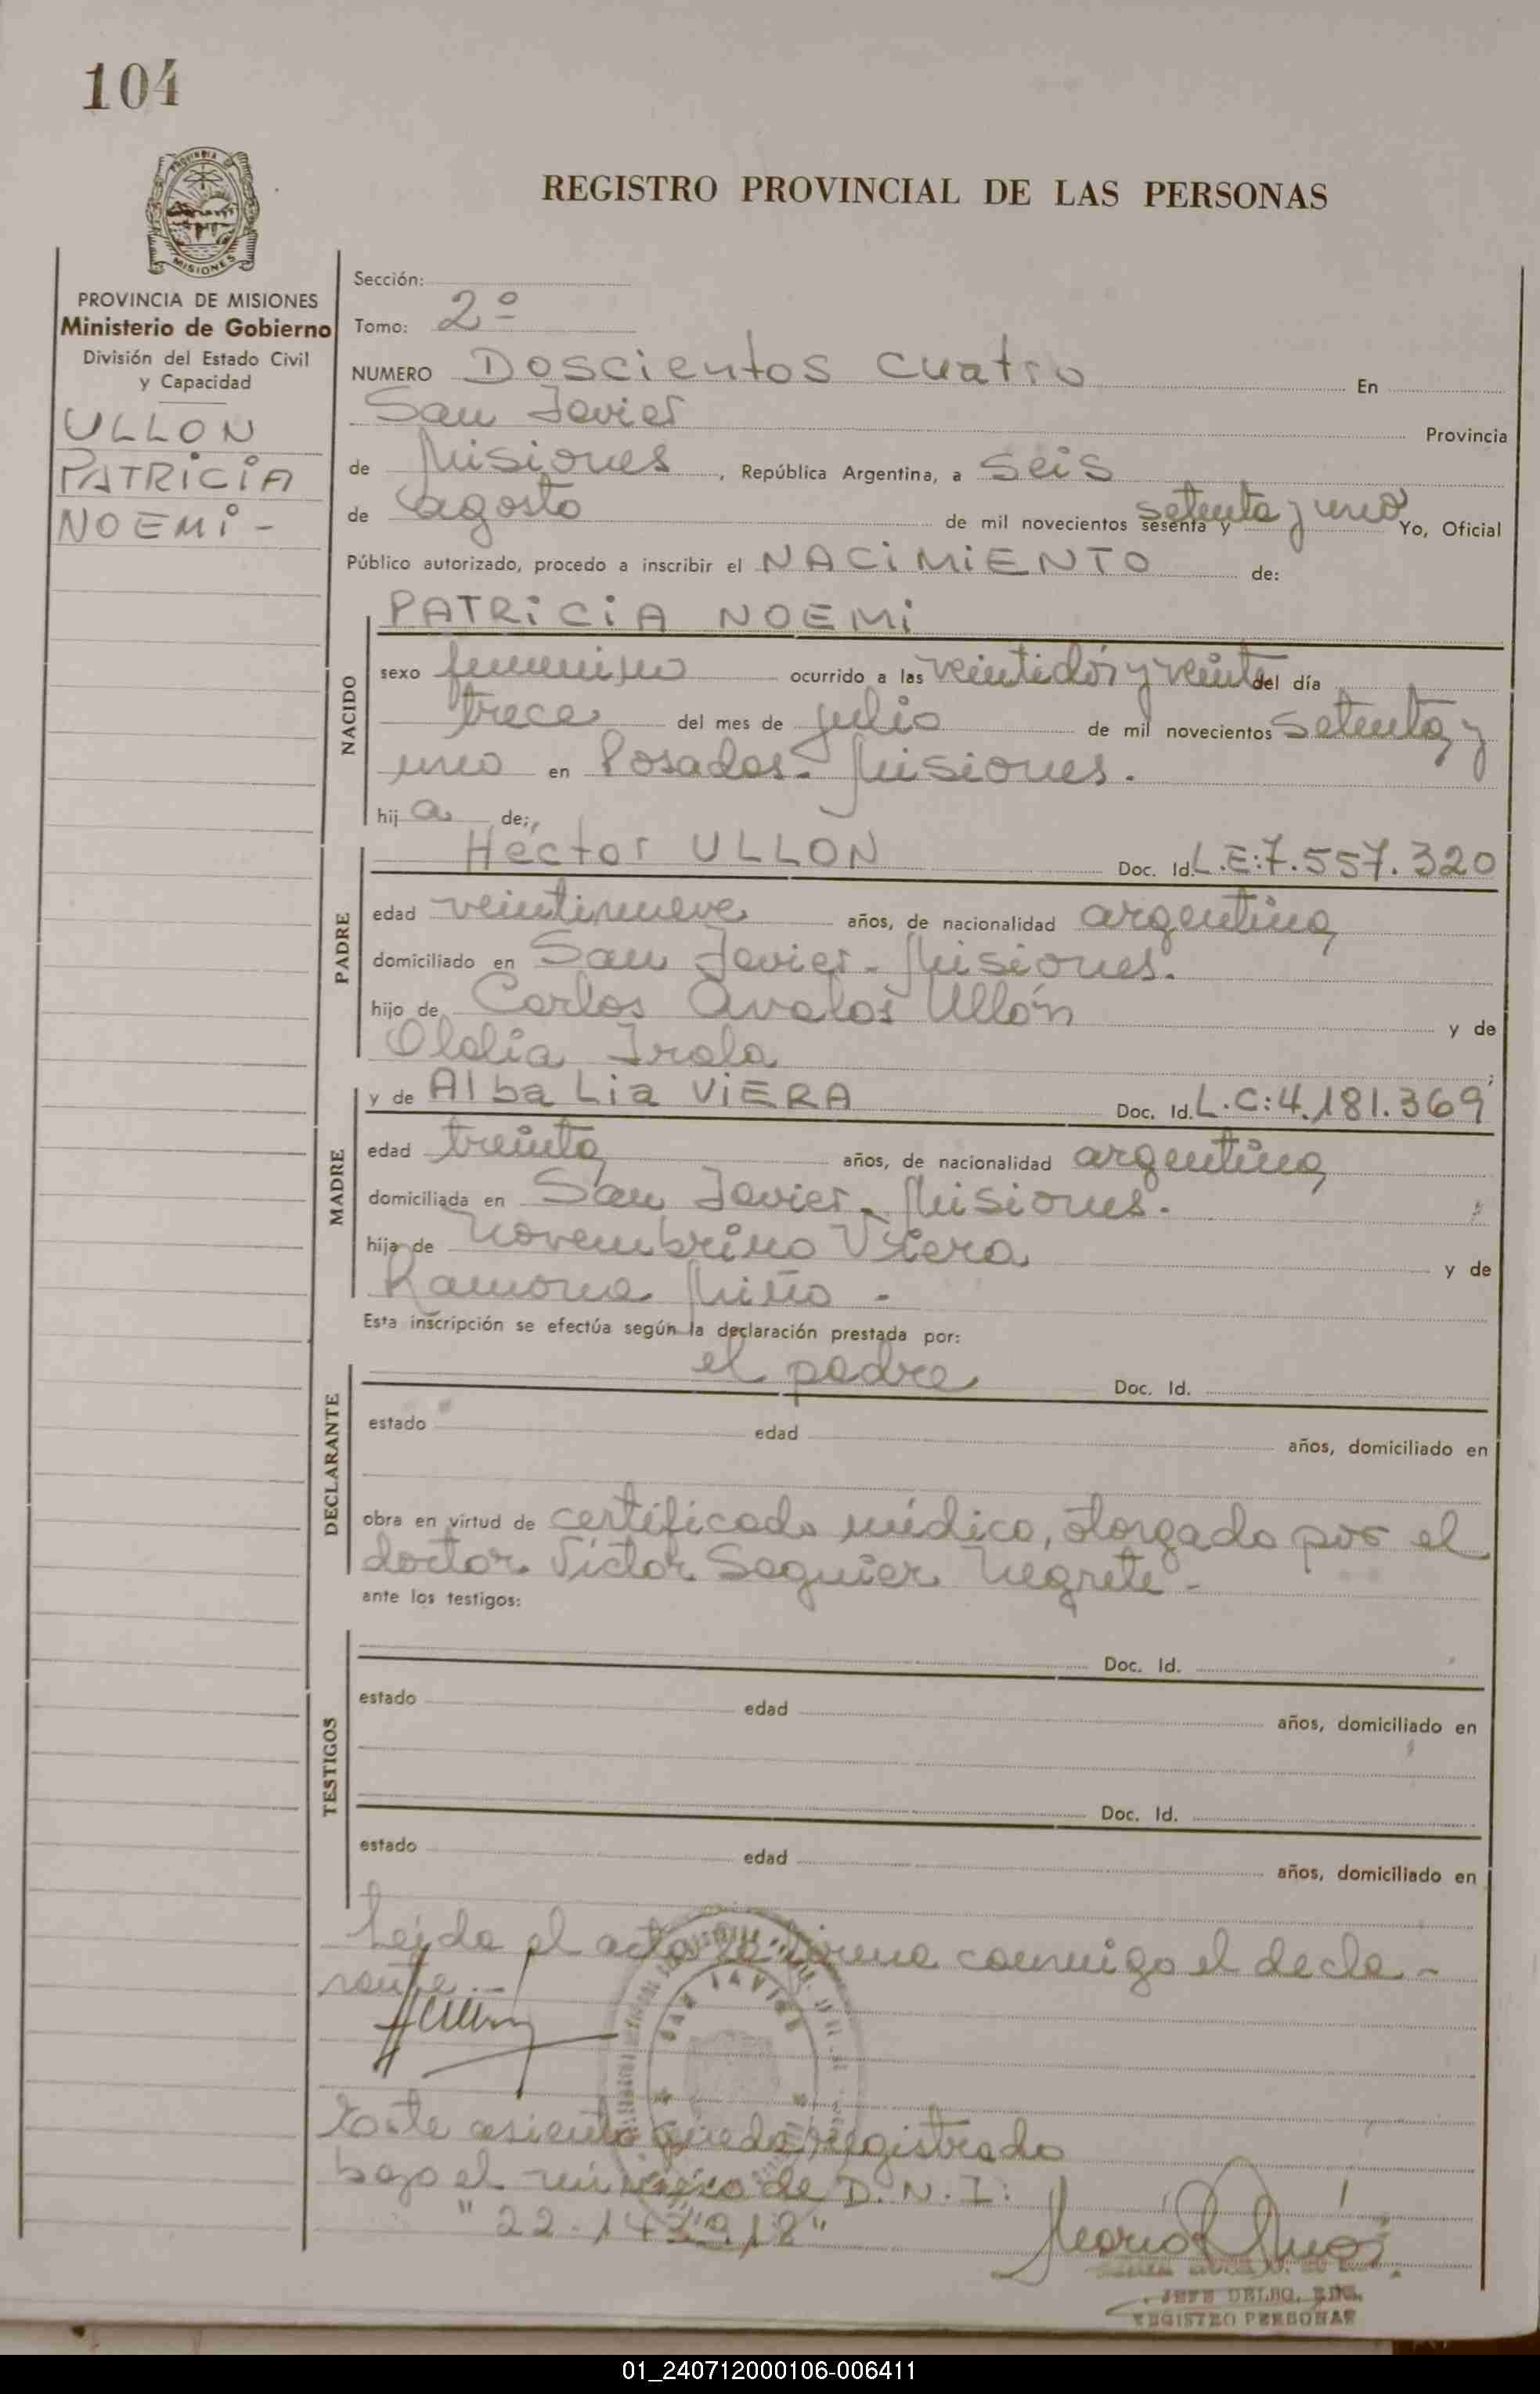 104
REGISTRO PROVINCIAL DE LAS PERSONAS
PROVINCIA DE MISIONES
MISIONES
PROVINCIA DE MISIONES
Ministerio de Gobierno
División del Estado Civil
y Capacidad
ULLON
PATRICIA
NOEMI -
Sección:
Tomo: 2º
NUMERO Doscientos Cuatro En
San Javier Provincia
de Misiones, República Argentina, a Seis
de agosto de mil novecientos sesenta y setenta y uno Yo, Oficial
Público autorizado, procedo a inscribir el NACIMIENTO de:
NACIDO
PATRICIA NOEMI
sexo femenino ocurrido a las veintidós y veinte del día
trece del mes de julio de mil novecientos setenta y
uno en Posadas - Misiones.
hij a de:
PADRE
Héctor ULLON Doc. Id. L.E:7.557.320
edad veintinueve años, de nacionalidad argentina
domiciliado en San Javier - Misiones.
hijo de Carlos Avalos Ullón y de
Olalia Irala ;
MADRE
y de Alba Lia VIERA Doc. Id. L.C:4.181.369
edad treinta años, de nacionalidad argentina
domiciliada en San Javier - Misiones.
hija de Novembrino Viera y de
Ramona Miño -
Esta inscripción se efectúa según la declaración prestada por:
DECLARANTE
el padre Doc. Id.
estado edad años, domiciliado en
obra en virtud de certificado médico, otorgado por el
doctor Víctor Seguier Negrete -
ante los testigos:
TESTIGOS
Doc. Id.
estado edad años, domiciliado en
Doc. Id.
estado edad años, domiciliado en
Leída el acta la firma conmigo el decla-
rante.-
SAN JAVIER
Este asiento queda registrado
bajo el número de D.N.I:
JEFE DELEG.
REGISTRO PERSONAS
01_240712000106-006411